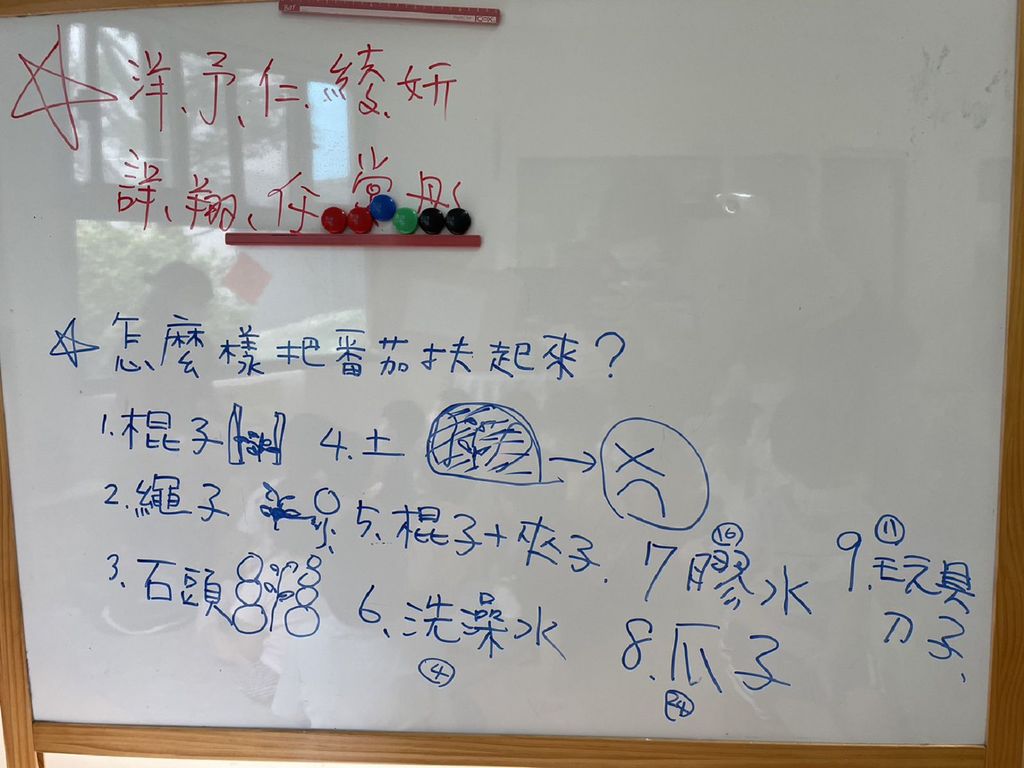 洋、予、仁、綾、妍
詳、翔、仔、棠、彤
怎麼樣把番茄扶起來？
1. 棍子
2. 繩子
3. 石頭
4. 土
5. 棍子+夾子
6. 洗澡水
④
7 膠水
⑯
8. 爪子
㉔
9. 玩具
刀子
⑪